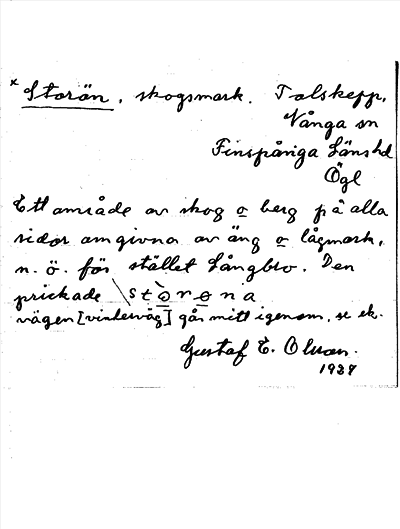 * Storän, skogsmark. Talskepp,
Vånga sn
Finspånga Läns hd
Ögl
Ett område av skog o berg på alla
sidor omgivna av äng o lågmark,
n. ö. för stället Långbro. Den
prickade \stòrena
vägen [vinterväg] går mitt igenom, se ek.
Gustaf E. Olsson.
1937